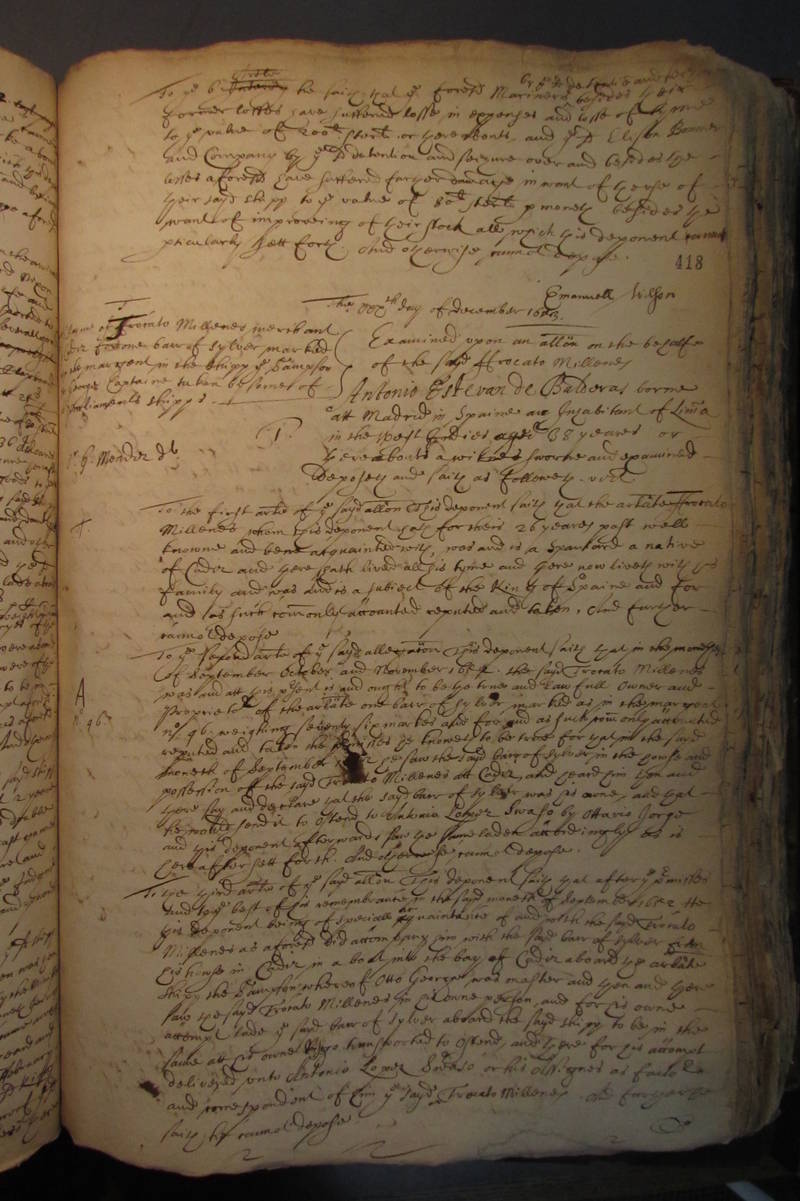 To ye 6th he saith that ye foresd Mariners by ye sd besides their
former losses have suffered losse in expences and losse of tyme
to ye value of 200li sterl. or thereabouts, and ye sd Elisha Bonner
and Company by ye sd detention and seizure over and besides the
losses aforesd have suffered further damage in want of the use of
their sayd shipp to ye value of sterl. p moneth besides the
want of improoveing of their stock all which this deponent cannot
pticularly sett forth. And otherwise cannot depose.
418
Emanuell Wilson
The day of december 1653.
of Trocato Millenes merchant
for one barr of sylver marked
margent in the shipp ye Sampson
George Captaine taken by some of
Parliaments shipps
Examined upon an allon on the behalfe
of the sayd Trocato Millenes
Antonio Estevan de Balderas borne
att Madrid in Spaine an Inhabitant of Lima
in the West Indies aged 38 yeares or
thereabouts a witnes sworne and examined
Deposeth and saith as followeth. vizt
To the first artle of ye sayd allon This deponent saith that the artlate Trocato
Millenes whom this deponent hath for theis 26 yeares past well
knowne and bene acquainted with, was and is a Spaniard a native
of Cadiz and there hath lived all his tyme and there now liveth with his
family and was and is a subiect of the King of Spaine and for
and as such comonly accounted reputed and taken, And further
cannot depose
To ye second artle of ye sayd allegation This deponent saith that in the moneths
of September October and November 1652. the sayd Trocato Millenes
was and att this psent is and ought to be the true and Lawfull Owner and
Proprietor of the artlate one barr of sylver marked as in the margent
A
no. 96
no. 96. weighing seventy six markes and for and as such comonly accounted
reputed and taken the premisses he knoweth to be true for that in the sayd
moneth of September 1652 he saw the sayd barr of sylver in the house and
possession of the sayd Trocato Millenes att Cadiz, and heard him then and
there say and declare that the sayd barr of sylver was his owne, and that
he would send it to Ostend to Antonio Lopez Suaso by Ottavio Jorge
and this deponent afterwards saw the same laden accordingly as is
hereafter sett forth. And otherwise cannot depose.
To the third artle of ye sayd allon This deponent saith that after ye pmisses
and this best of his remembrance in the sayd moneth of September 1652 he
this deponent being of speciall acquaintance of and with the sayd Trocato
Millenes as aforesd did accompany him with the sayd barr of sylver from
his house in Cadiz in a boat into the bay of Cadiz aboard the artlate
shipp the Sampson whereof Otto George was master and then and there
saw the sayd Trocato Millenes in his owne person, and for his owne
accompt lade ye sayd barr of sylver aboard the sayd shipp to be in the
same att his owne transported to Ostend, and there for his accompt
delivered unto Antonio Lopez Soeaso or his Assignes as factor
and correspondent of him ye sayd Trocato Millenes. And further
saith he cannot depose